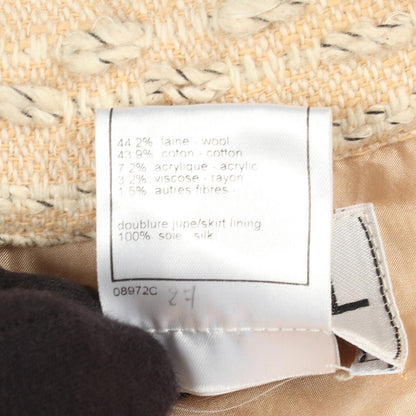 44.2% laine - wool
43.9% coton - cotton
7.2% acrylique - acrylic
3.2% viscose - rayon
1.5% autres fibres -
doublure jupe/skirt lining
100% soie - silk
08972C 27